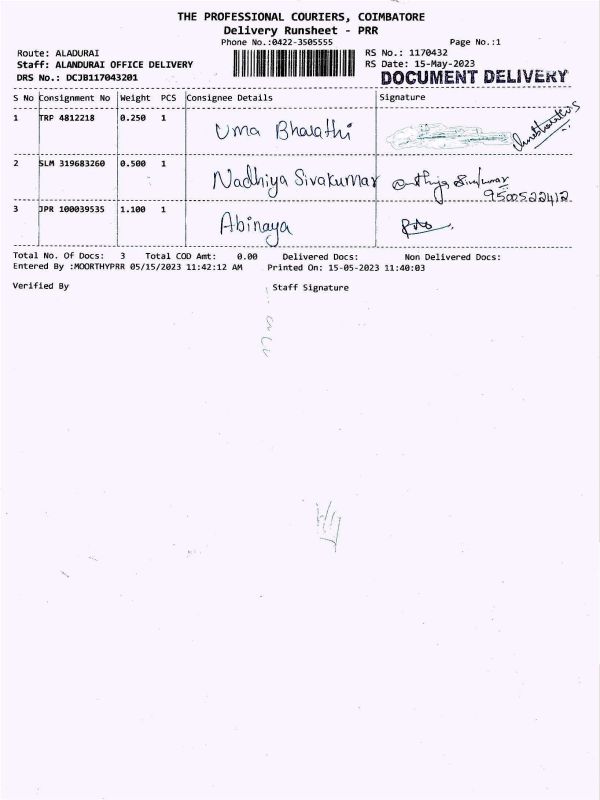 THE PROFESSIONAL COURIERS, COIMBATORE
Delivery Runsheet - PRR
Phone No.:0422-3505555 Page No.:1
Route: ALADURAI RS No.: 1170432
Staff: ALANDURAI OFFICE DELIVERY RS Date: 15-May-2023
DRS No.: DCJB117043201 DOCUMENT DELIVERY
S No Consignment No Weight PCS Consignee Details Signature
1 TRP 4812218 0.250 1 Uma Bharathi
2 SLM 319683260 0.500 1 Nadhiya Sivakumar
9500522412
3 JPR 100039535 1.100 1 Abinaya
Total No. Of Docs: 3 Total COD Amt: 0.00 Delivered Docs: Non Delivered Docs:
Entered By :MOORTHYPRR 05/15/2023 11:42:12 AM Printed On: 15-05-2023 11:40:03
Verified By Staff Signature